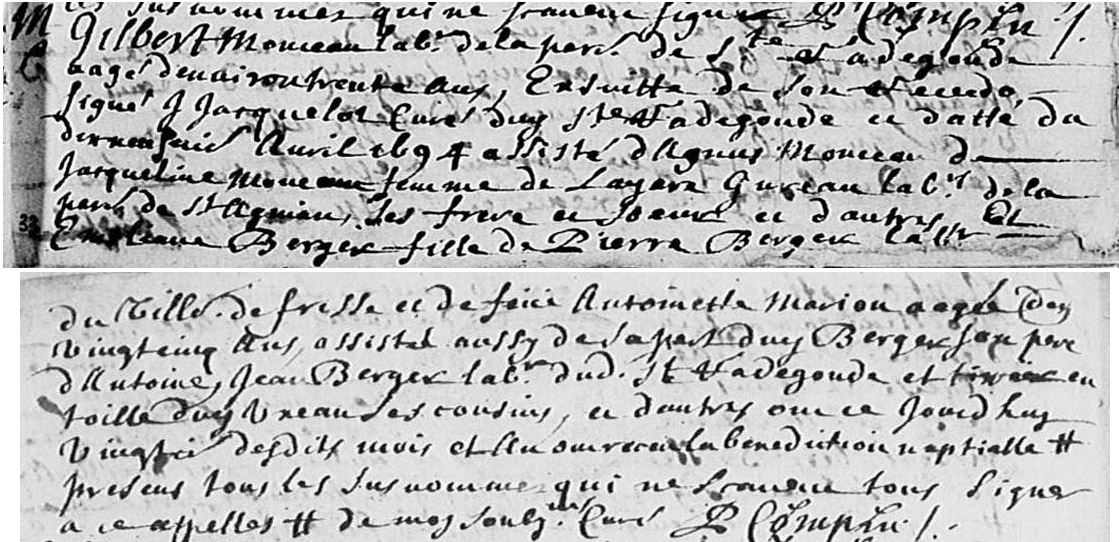 les susnommez qui ne scavent signer P Compin /.
M Gilbert Monceau lab.r de la par.se de S.te Radegonde
aagé denviron trente ans, Ensuitte de son Recedo
signé J Jacquelot Curé dud S.te Radegonde en datte du
Avril 1694 assisté d'Agnus Monceau de
Jacqueline Monceau femme de Lazare Gureau lab.r de la
par.se de St Agnian, ses frere et soeur et d'autres, Et
Emiliane Berger fille de Pierre Berger lab.r
du Ville. de fresse et de feüe Antoinette Marion aagée de
vingtcinq Ans, assistée aussy de sa part dud Berger son pere
d'Antoine, Jean Berger lab.r dud. S.te Radegonde et tixier en
toille dud Vneau ses cousins, et d'autres ont ce Jourdhuy
Vingt desdits mois et An ont receu la benediction nuptialle #
presens tous les susnommez qui ne scavent tous signer
a ce appelles # de moy soub.né Curé P Compin /.